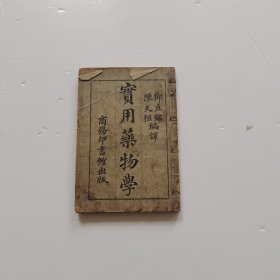 鄭豈編
陳天樞編譯
實用藥物學
商務印書館出版